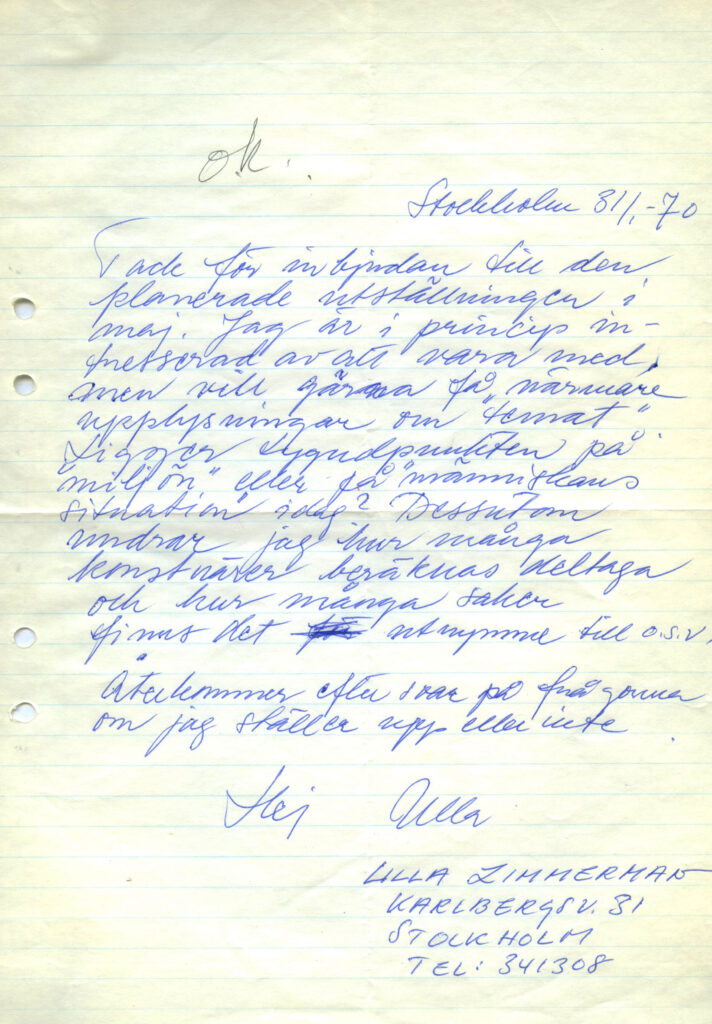 ok.
Stockholm 31/1 -70
Tack för inbjudan till den
planerade utställningen i
maj. Jag är i princip in-
tresserad av att vara med,
men vill gärna få närmare
upplysningar om "temat".
Ligger tyngdpunkten på
"miljön" eller på "människans
situation" idag? Dessutom
undrar jag hur många
konstnärer beräknas deltaga
och hur många saker
finns det utrymme till o.s.v.
Återkommer efter svar på frågorna
om jag ställer upp eller inte.
Hej Ulla
ULLA ZIMMERMAN
KARLBERGSV. 31
STOCKHOLM
TEL: 341308